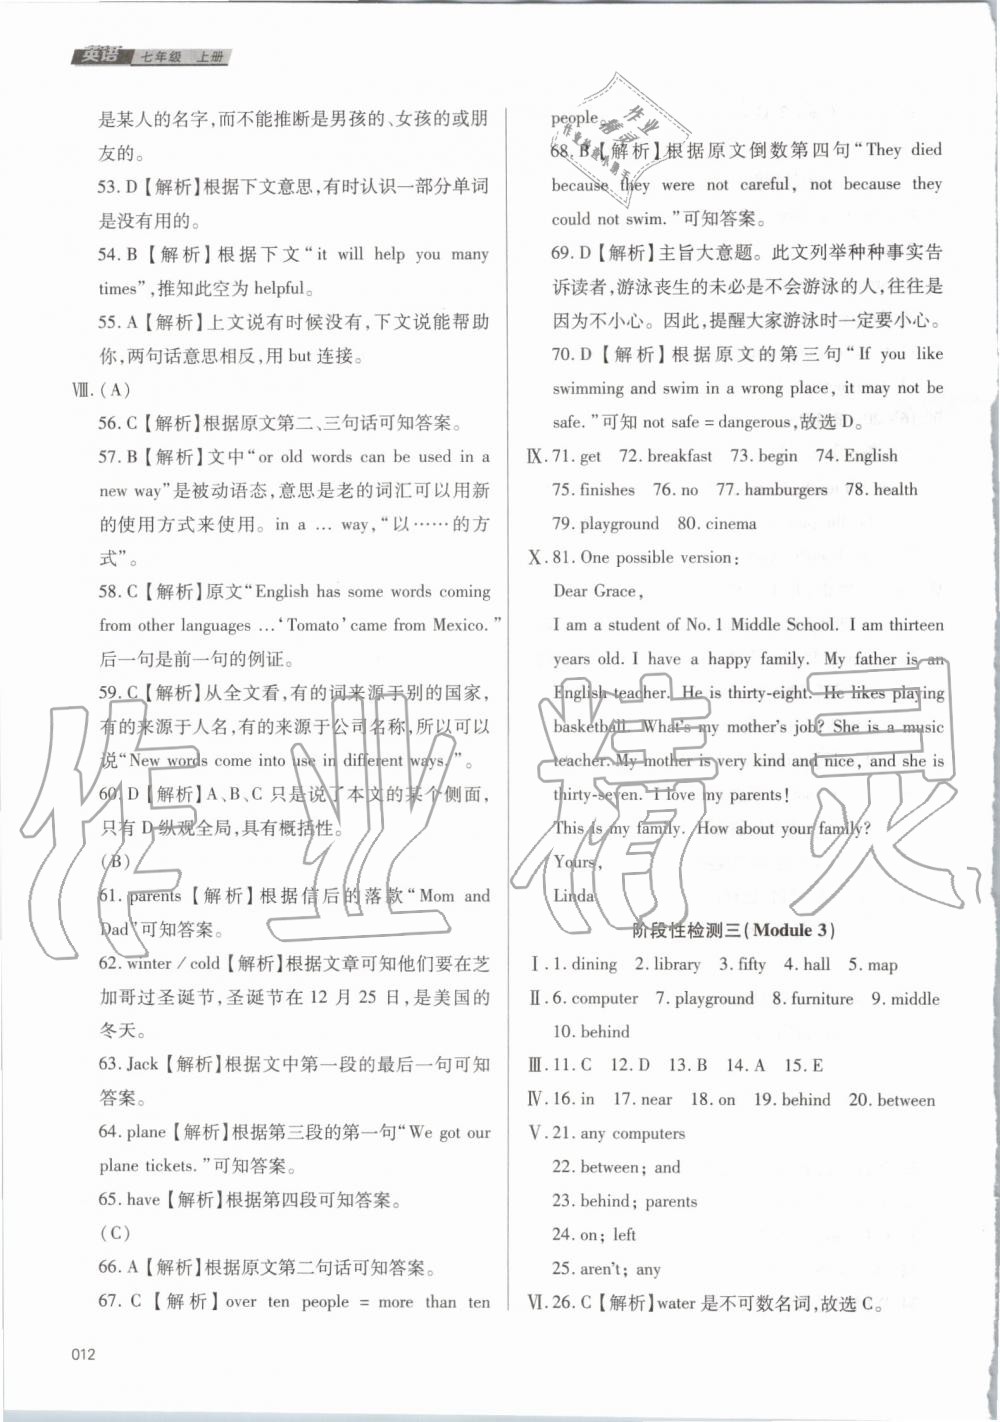 英语 七年级 上册
是某人的名字,而不能推断是男孩的、女孩的或朋
友的。
53. D【解析】根据下文意思,有时认识一部分单词
是没有用的。
54. B【解析】根据下文“it will help you many
times”,推知此空为 helpful。
55. A【解析】上文说有时候没有,下文说能帮助
你,两句话意思相反,用 but 连接。
Ⅷ. (A)
56. C【解析】根据原文第二、三句话可知答案。
57. B【解析】文中“or old words can be used in a
new way”是被动语态,意思是老的词汇可以用新
的使用方式来使用。in a … way,“以……的方
式”。
58. C【解析】原文“English has some words coming
from other languages …‘Tomato’came from Mexico.”
后一句是前一句的例证。
59. C【解析】从全文看,有的词来源于别的国家,
有的来源于人名,有的来源于公司名称,所以可以
说“New words come into use in different ways.”。
60. D【解析】A、B、C 只是说了本文的某个侧面,
只有 D 纵观全局,具有概括性。
(B)
61. parents【解析】根据信后的落款“Mom and
Dad”可知答案。
62. winter / cold【解析】根据文章可知他们要在芝
加哥过圣诞节,圣诞节在 12 月 25 日,是美国的
冬天。
63. Jack【解析】根据文中第一段的最后一句可知
答案。
64. plane【解析】根据第三段的第一句“We got our
plane tickets.”可知答案。
65. have【解析】根据第四段可知答案。
(C)
66. A【解析】根据原文第二句话可知答案。
67. C【解析】over ten people = more than ten
people。
68. B【解析】根据原文倒数第四句“They died
because they were not careful, not because they
could not swim.”可知答案。
69. D【解析】主旨大意题。此文列举种种事实告
诉读者,游泳丧生的未必是不会游泳的人,往往是
因为不小心。因此,提醒大家游泳时一定要小心。
70. D【解析】根据原文的第三句“If you like
swimming and swim in a wrong place, it may not be
safe.”可知 not safe = dangerous,故选 D。
Ⅸ. 71. get 72. breakfast 73. begin 74. English
75. finishes 76. no 77. hamburgers 78. health
79. playground 80. cinema
Ⅹ. 81. One possible version:
Dear Grace,
I am a student of No. 1 Middle School. I am thirteen
years old. I have a happy family. My father is an
English teacher. He is thirty-eight. He likes playing
basketball. What's my mother's job? She is a music
teacher. My mother is very kind and nice, and she is
thirty-seven. I love my parents!
This is my family. How about your family?
Yours,
Linda
阶段性检测三(Module 3)
Ⅰ. 1. dining 2. library 3. fifty 4. hall 5. map
Ⅱ. 6. computer 7. playground 8. furniture 9. middle
10. behind
Ⅲ. 11. C 12. D 13. B 14. A 15. E
Ⅳ. 16. in 17. near 18. on 19. behind 20. between
Ⅴ. 21. any computers
22. between; and
23. behind; parents
24. on; left
25. aren't; any
Ⅵ. 26. C【解析】water 是不可数名词,故选 C。
012
作业精灵